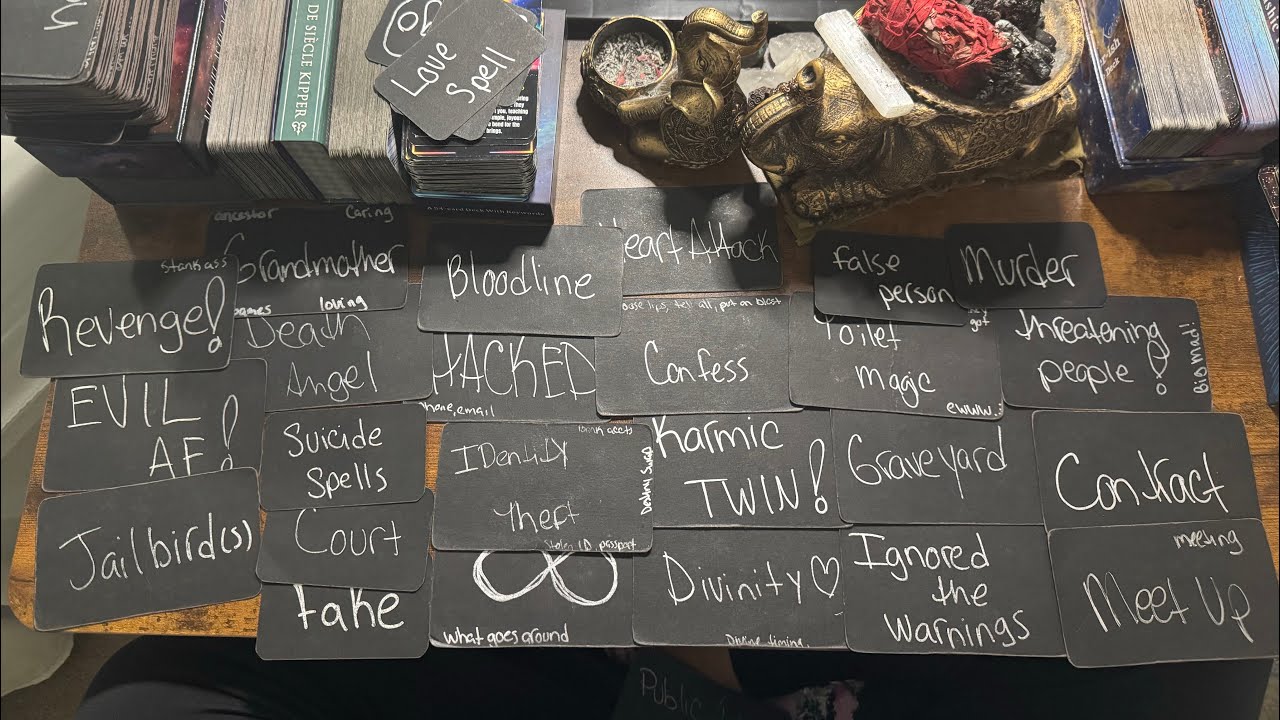 DE SIÈCLE KIPPER
Love
Spell
A 54-card Deck With Keywords
ancestor caring
Grandmother
games loving
stank ass
Revenge!
Bloodline
Heart Attack
false
person
Murder
Death
Angel
HACKED
phone, email
loose lips, tell all, put on blast
Confess
Toilet
magic
ewww.:
got
threatening
people!
Big Mad!!
EVIL
AF!
Suicide
Spells
IDentity
Theft
Stolen ID, passport
Destiny Swap
Karmic
TWIN!
Graveyard
Contract
Jailbird(s)
Court
take
what goes around
Divinity
Divine timing.
Ignored
the
Warnings
meeting
Meet Up
Public